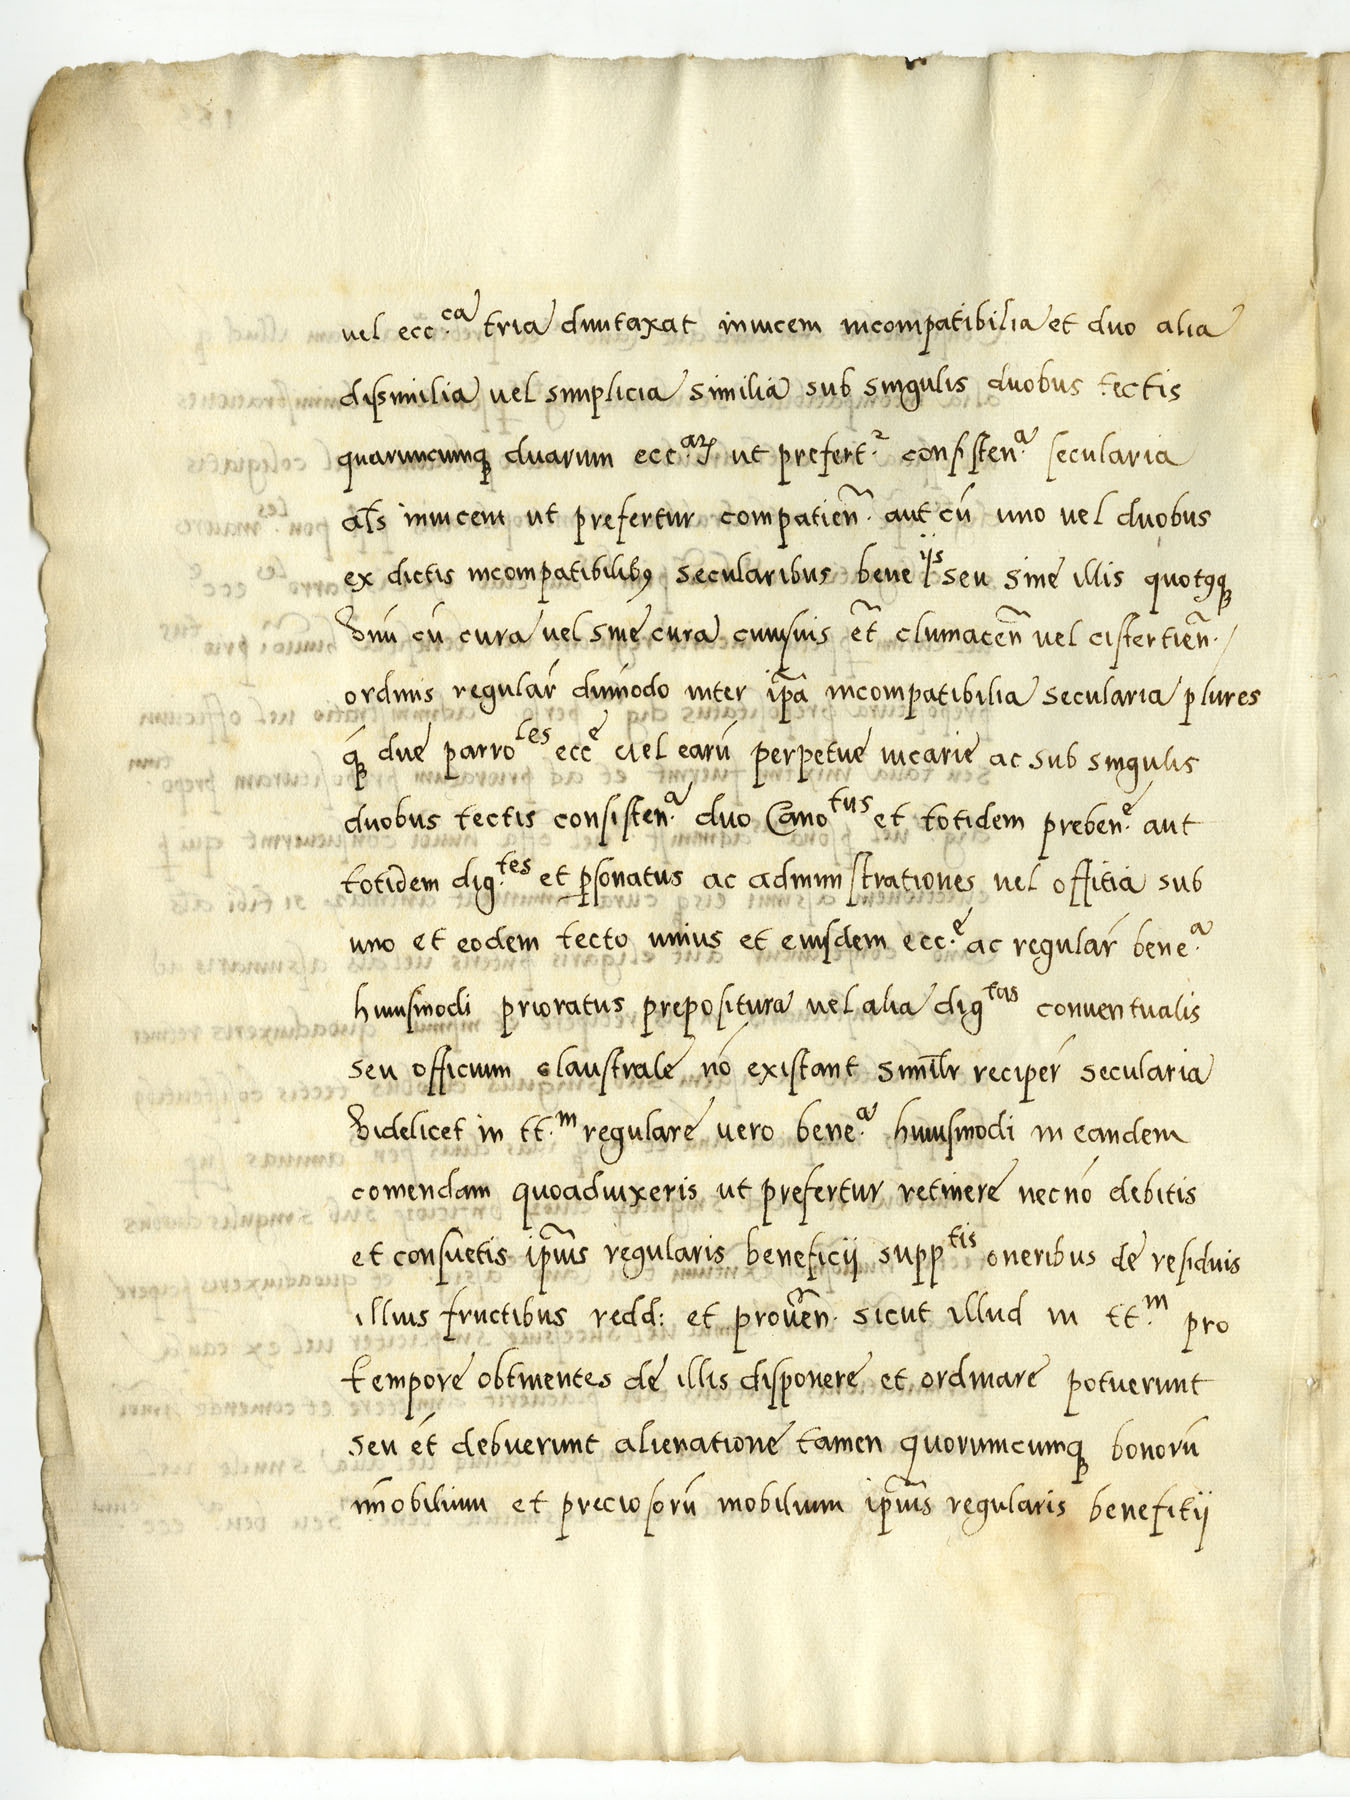 vel ecc.ca tria dumtaxat inuicem incompatibilia et duo alia
dissimilia vel simplicia similia sub singulis duobus tectis
quaruncumq duarum ecc.arꝝ ut prefert.r consisten.a secularia
als inuicem ut prefertur compatien. aut cū uno vel duobus
ex dictis incompatibilibꝰ secularibus bene.iis seu sine illis quotꝗ
Vnū cū cura vel sine cura cuiusuis et̄ cluniacen̄ vel cistertien̄. /
ordinis regular dūmodo inter ip̄a incompatibilia secularia plures
ꝙ due parroles ecce vel earū perpetue uicarie ac sub singulis
duobus tectis consisten.a duo Canotus et totidem preben.e aut
totidem dig.tes et ꝑsonatus ac administrationes vel offitia sub
uno et eodem tecto unius et eiusdem ecc.e ac regular bene.a
huiusmodi prioratus prepositura vel alia digtas conventualis
seu officium claustrale nō existant similr reciper secularia
Videlicet in tt.m regulare vero bene.a huiusmodi in eandem
comendam quoaduixeris ut prefertur retinere necnō debitis
et consuetis ip̄ius regularis beneficij supptis oneribus de residuis
illius fructibus redd: et proven̄. sicut illud in tt.m pro
tempore obtinentes de illis disponere et ordinare potuerunt
seu ét debuerunt alienatione tamen quorumcumq bonorū
īmobilium et preciosorū mobilium ip̄ius regularis benefitij